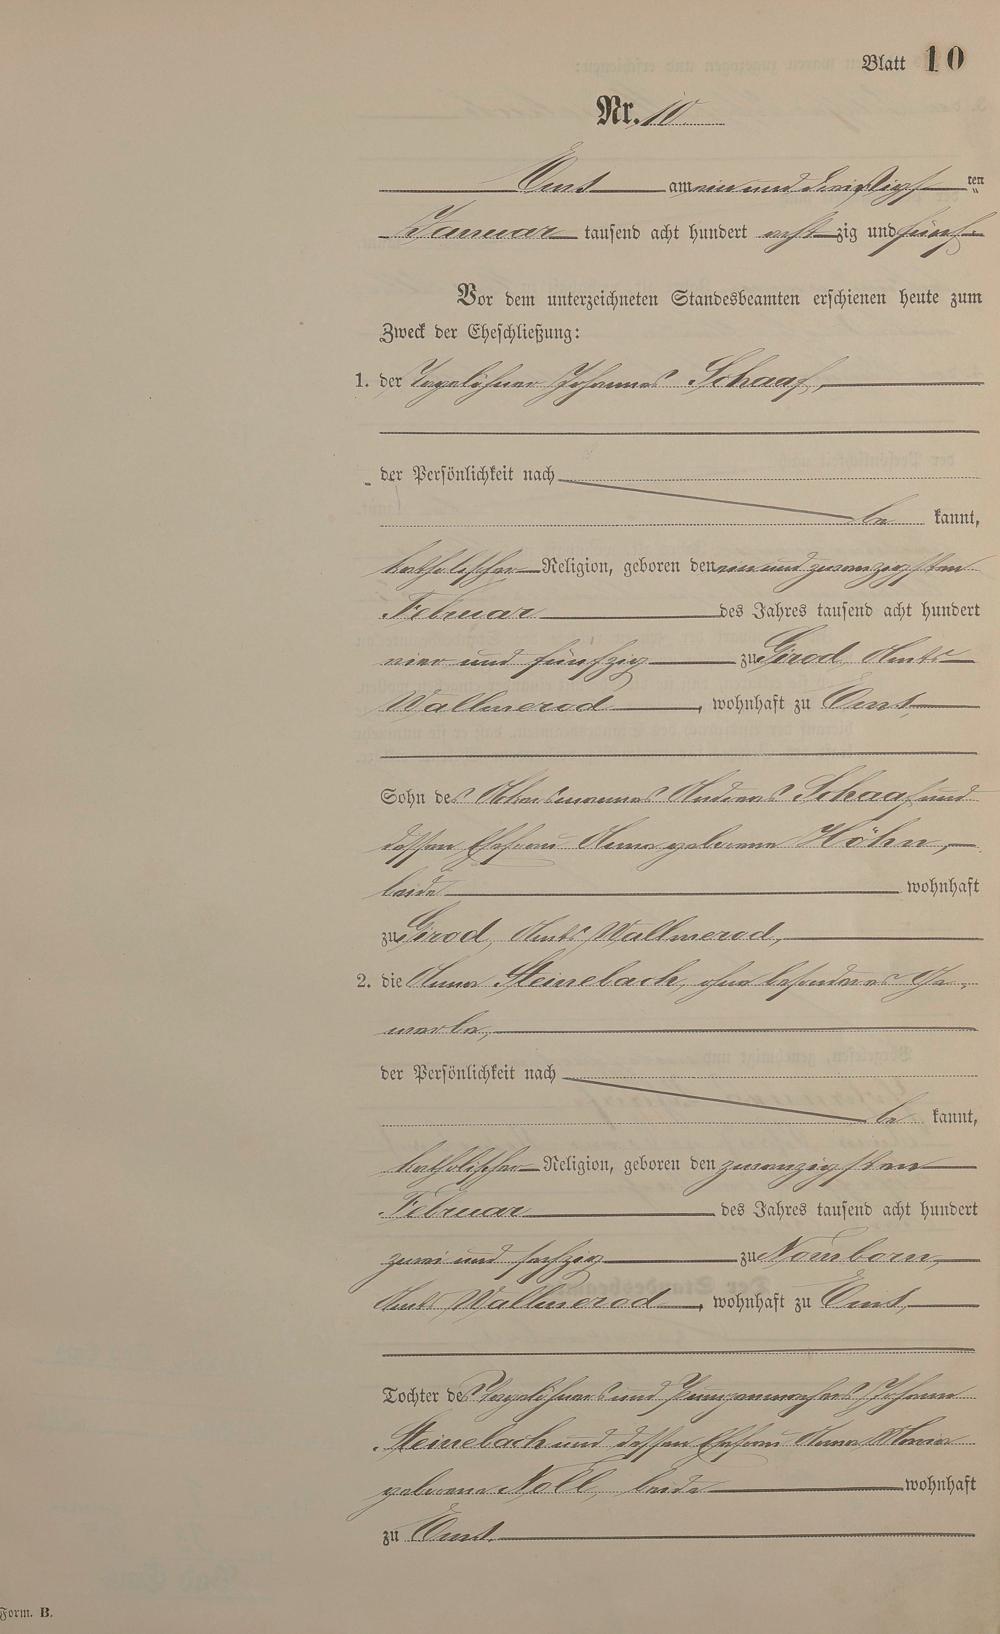 Blatt 10
Nr. 10
Ems am ein und dreißigsten
Januar tausend acht hundert acht zig und fünf.
Vor dem unterzeichneten Standesbeamten erschienen heute zum
Zweck der Eheschließung:
1. der Tagelöhner Johannes Schaaf,
der Persönlichkeit nach
be kannt,
katholischer Religion, geboren den ein und zwanzigsten
Februar des Jahres tausend acht hundert
vier und fünfzig zu Girod Amts
Wallmerod, wohnhaft zu Ems,
Sohn des Ackersmannes Andreas Schaaf und
dessen Ehefrau Anna geborene Höhn,
beide wohnhaft
zu Girod, Amts Wallmerod,
2. die Anna Steinebach, ohne besonderes Ge-
werbe,
der Persönlichkeit nach
be kannt,
katholischer Religion, geboren den zwanzigsten
Februar des Jahres tausend acht hundert
zwei und sechzig zu Nomborn,
Amts Wallmerod, wohnhaft zu Ems,
Tochter des Tagelöhners und Johann
Steinebach und dessen Ehefrau Anna Maria
geborene Noll, beide wohnhaft
zu Ems.
Form. B.